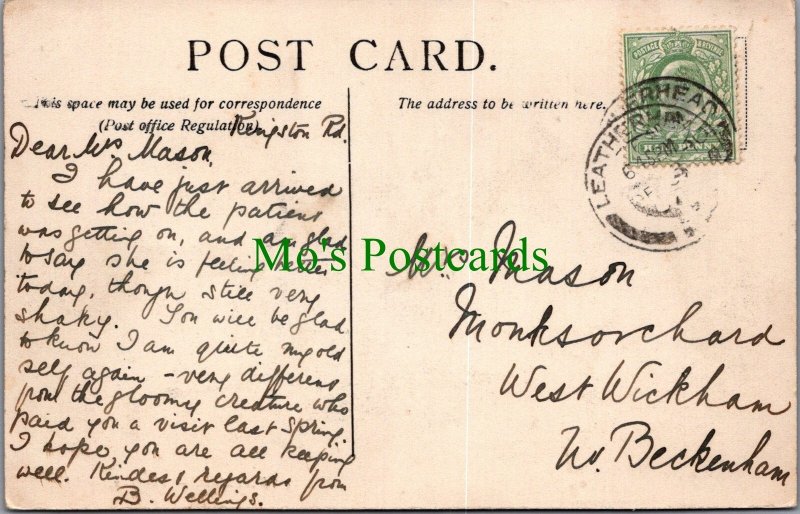 POST CARD.
This space may be used for correspondence
(Post office Regulation)
The address to be written here.
POSTAGE & REVENUE
HALF PENNY
LEATHERHEAD
Kingston Rd.
Dear Mrs Mason,
I have just arrived
to see how the patient
was getting on, and am glad
to say she is feeling better
today, though still very
shaky. You will be glad
to know I am quite my old
self again – very different
from the gloomy creature who
paid you a visit last Spring.
I hope you are all keeping
well. Kindest regards from
B. Wellings.
Mo's Postcards
Mrs Mason
Monksorchard
West Wickham
Nr. Beckenham